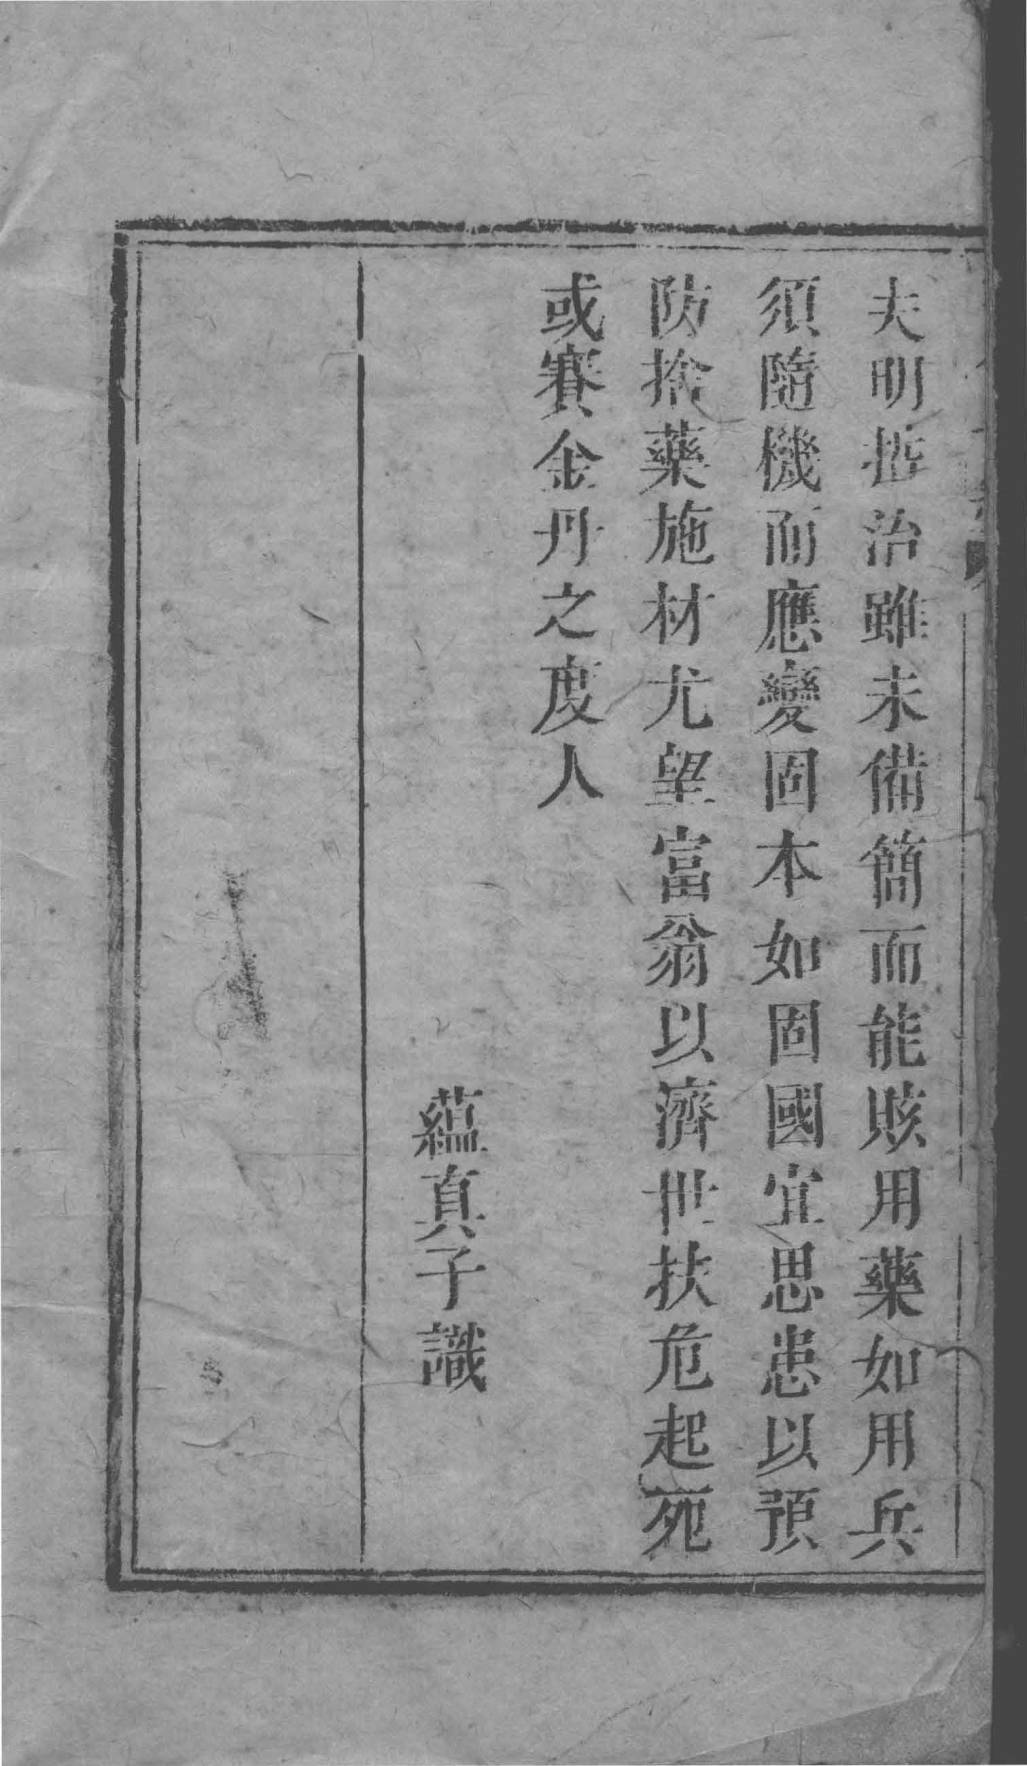 夫明拯治雖未備簡而能賅用藥如用兵
須隨機而應變固本如固國宜思患以預
防捨藥施材尤望富翁以濟世扶危起死
或賽金丹之度人
蘊真子識